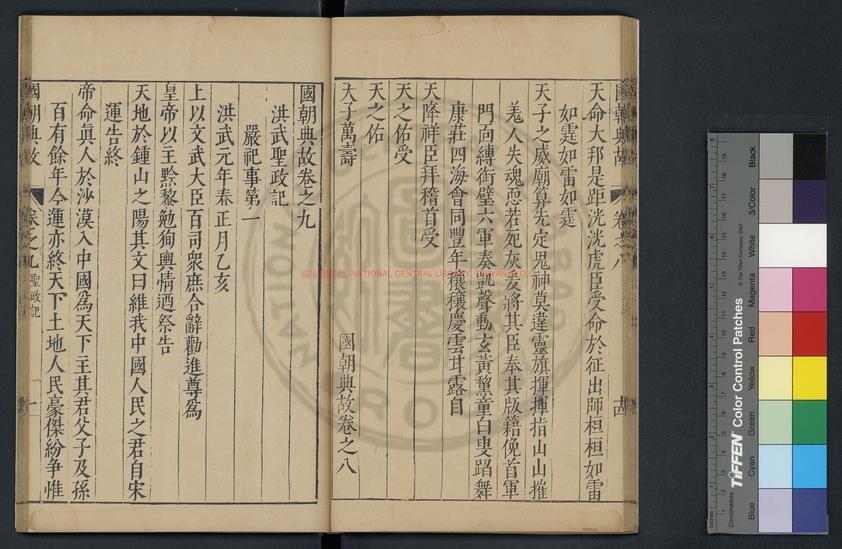 國朝典故 卷之八 十四
天命大邦是距洸洸虎臣受命於征出師桓桓如雷
如霆如雷如霆
天子之威廟算先定鬼神莫違靈旗揮揮指山山摧
羗人失魂恧若死灰爰將其臣奉其版籍俛首軍
門面縛銜璧六軍奏凱聲動玄黃黧童白叟蹈舞
康莊四海會同豐年穰穰慶雲甘露自
天降祥臣拜稽首受
天之佑受
天之佑
天子萬壽
國朝典故卷之八
國朝典故卷之九
洪武聖政記
嚴祀事第一
洪武元年春正月乙亥
上以文武大臣百司衆庶合辭勸進尊爲
皇帝以主黔黎勉狥輿情迺祭告
天地於鍾山之陽其文曰維我中國人民之君自宋
運告終
帝命眞人於沙漠入中國爲天下主其君父子及孫
百有餘年今運亦終天下土地人民豪傑紛爭惟
國朝典故 卷之九 聖政記 一
NATIONAL CENTRAL LIBRARY
TIFFEN Color Control Patches
© The Tiffen Company, 2007
Centimetres
Inches
Blue
Cyan
Green
Yellow
Red
Magenta
White
3/Color
Black